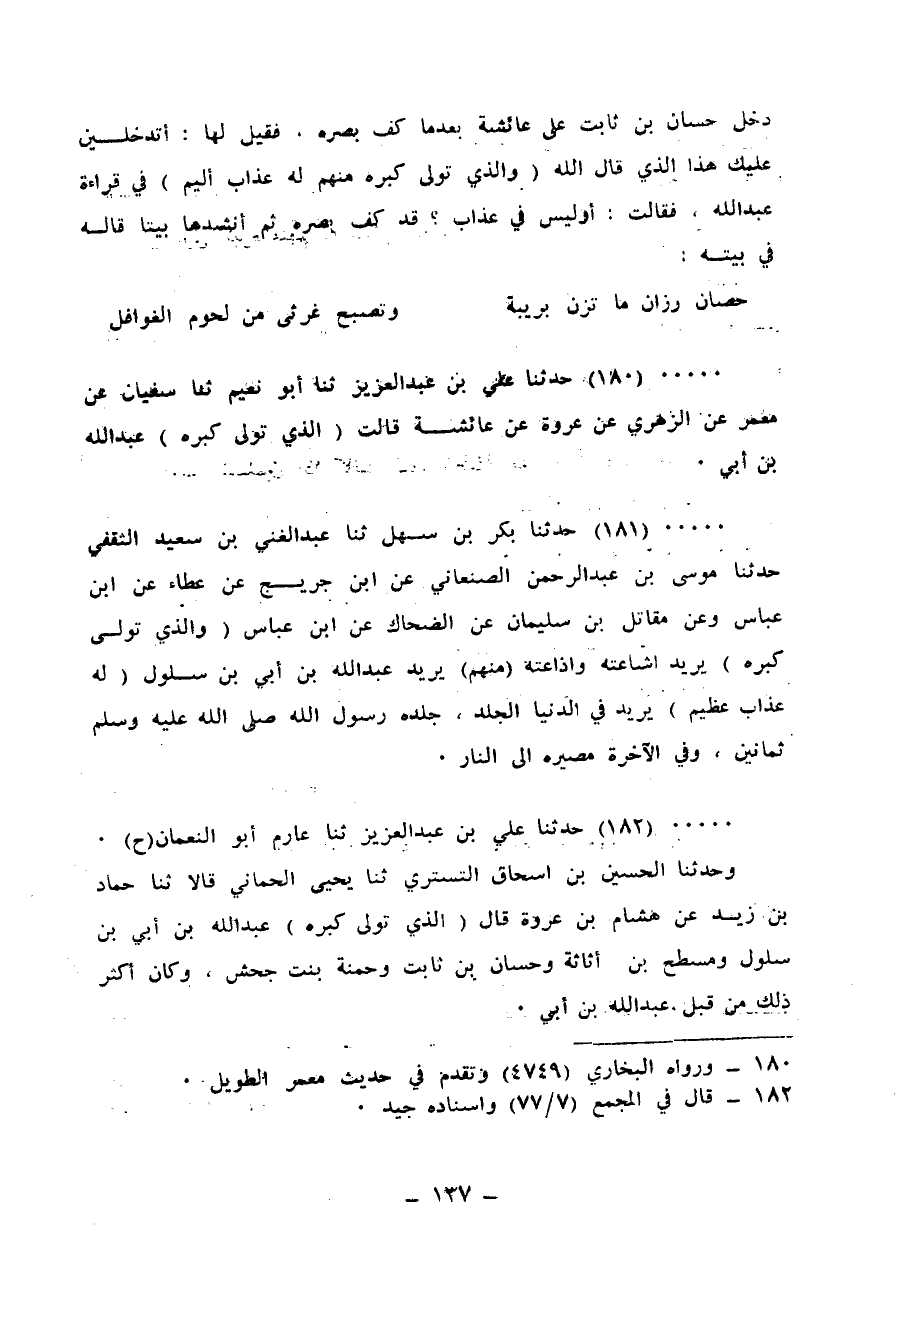 دخل حسان بن ثابت على عائشة بعدما كف بصره . فقيل لها : أتدخلــــين
عليك هذا الذي قال الله ( والذي تولى كبره منهم له عذاب أليم ) في قراءة
عبدالله ، فقالت : أوليس في عذاب ؟ قد كف بصره ثم أنشدها بيتا قالــه
في بيتــه :
حصان رزان ما تزن بريبة وتصبح غرثى من لحوم الغوافل
..... (١٨٠) حدثنا علي بن عبدالعزيز ثنا أبو نعيم ثنا سفيان عن
معمر عن الزهري عن عروة عن عائشــــة قالت ( الذي تولى كبره ) عبدالله
بن أبي .
..... (١٨١) حدثنا بكر بن ســهل ثنا عبدالغني بن سعيد الثقفي
حدثنا موسى بن عبدالرحمن الصنعاني عن ابن جريــــج عن عطاء عن ابن
عباس وعن مقاتل بن سليمان عن الضحاك عن ابن عباس ( والذي تولــى
كبره ) يريد اشاعته واذاعته (منهم) يريد عبدالله بن أبي بن ســلول ( له
عذاب عظيم ) يريد في الدنيا الجلد ، جلده رسول الله صلى الله عليه وسلم
ثمانين ، وفي الآخرة مصيره الى النار .
..... (١٨٢) حدثنا علي بن عبدالعزيز ثنا عارم أبو النعمان(ح) .
وحدثنا الحسين بن اسحاق التستري ثنا يحيى الحماني قالا ثنا حماد
بن زيــد عن هشام بن عروة قال ( الذي تولى كبره ) عبدالله بن أبي بن
سلول ومسطح بن أثاثة وحسان بن ثابت وحمنة بنت جحش ، وكان أكثر
ذلك من قبل عبدالله بن أبي .
١٨٠ ـ ورواه البخاري (٤٧٤٩) وتقدم في حديث معمر الطويل .
١٨٢ ـ قال في المجمع (٧٧/٧) واسناده جيد .
ـ ١٣٧ ـ